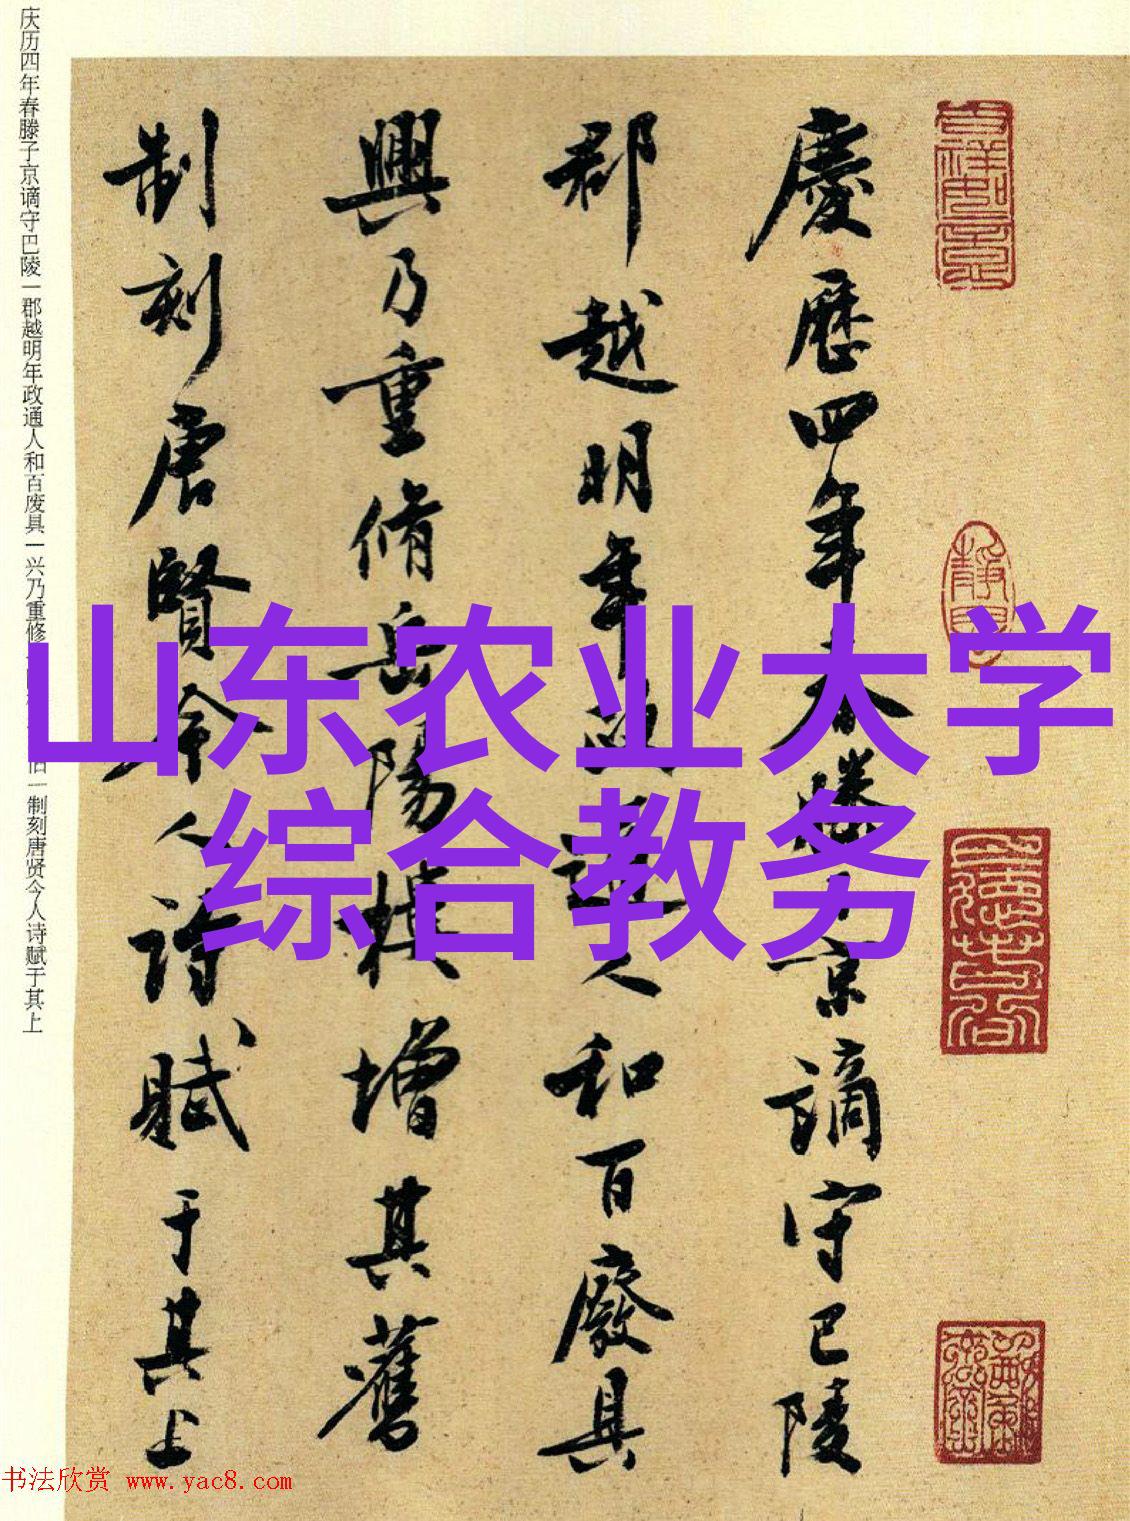 山东农业大学
综合教务
慶歷四年春滕京謫守巴陵
郡越明年政通人和百廢具
興乃重脩岳陽樓增其舊
制刻唐賢今人詩賦于其上
庆历四年春滕子京谪守巴陵一郡越明年政通人和百废具一兴乃重修一制刻唐贤今人诗赋于其上
书法欣赏 www.yac8.com